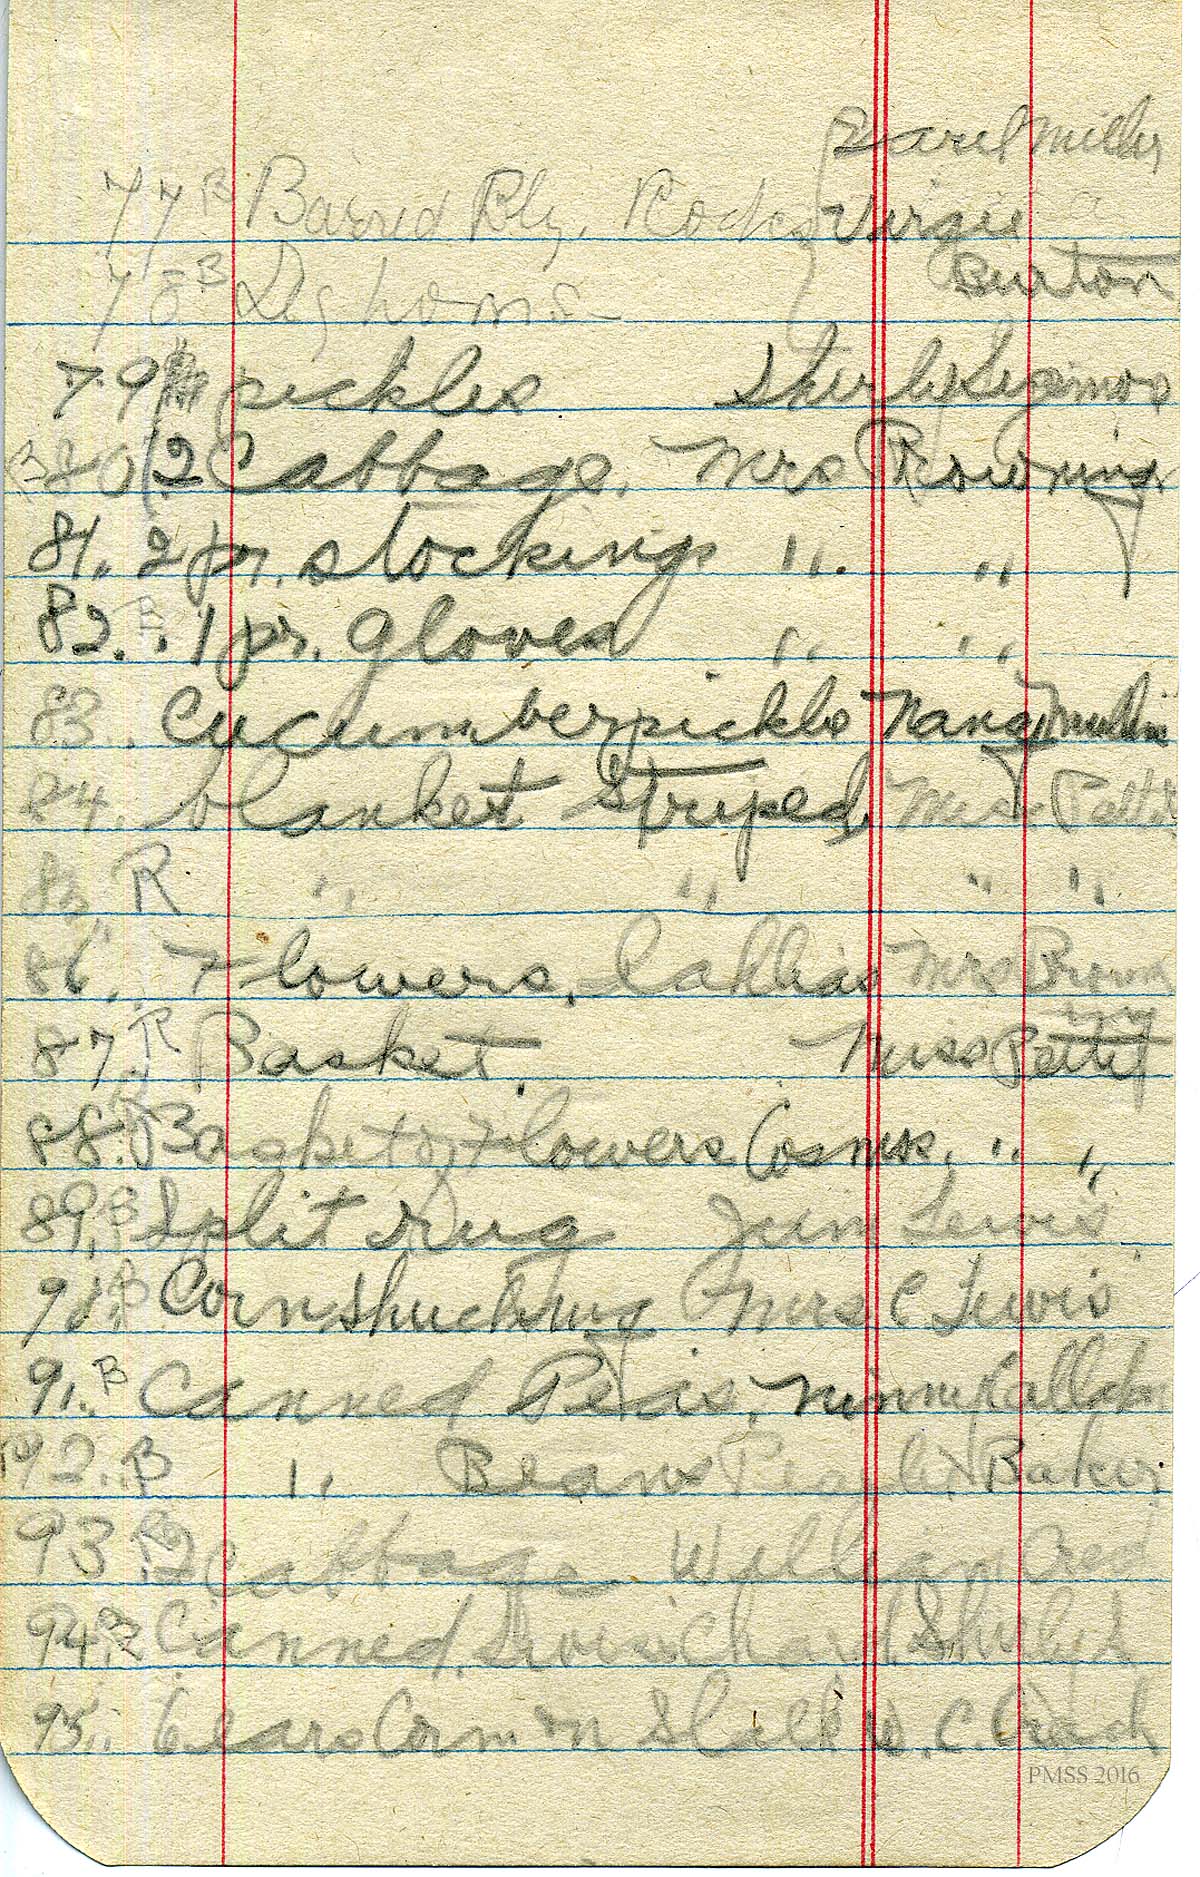 Miller
77 B Barred Ply. Rocks Virgie
78 B Leghorns Burton
79 pickles
B 80 2 Cabbage. Mrs Browning
81. 2 pr. stockings " "
82. B. 1 pr. gloves " "
83. Cucumber pickles Nancy
84. blanket Striped. Miss Pettit
85 R " " " "
86. Flowers, Dahlias Mrs Browning
87. R Basket. Miss Pettit
88. Basket of Flowers Cosmos. " "
89. B Split rug Jim Lewis
90. B Corn Shuck rug Mrs C Lewis
91. B Canned Peas,
92. B " Beans Baker
93 2 Cabbage William
94. Canned Swiss Chard
95. 6 ears Corn on Stalk
PMSS 2016